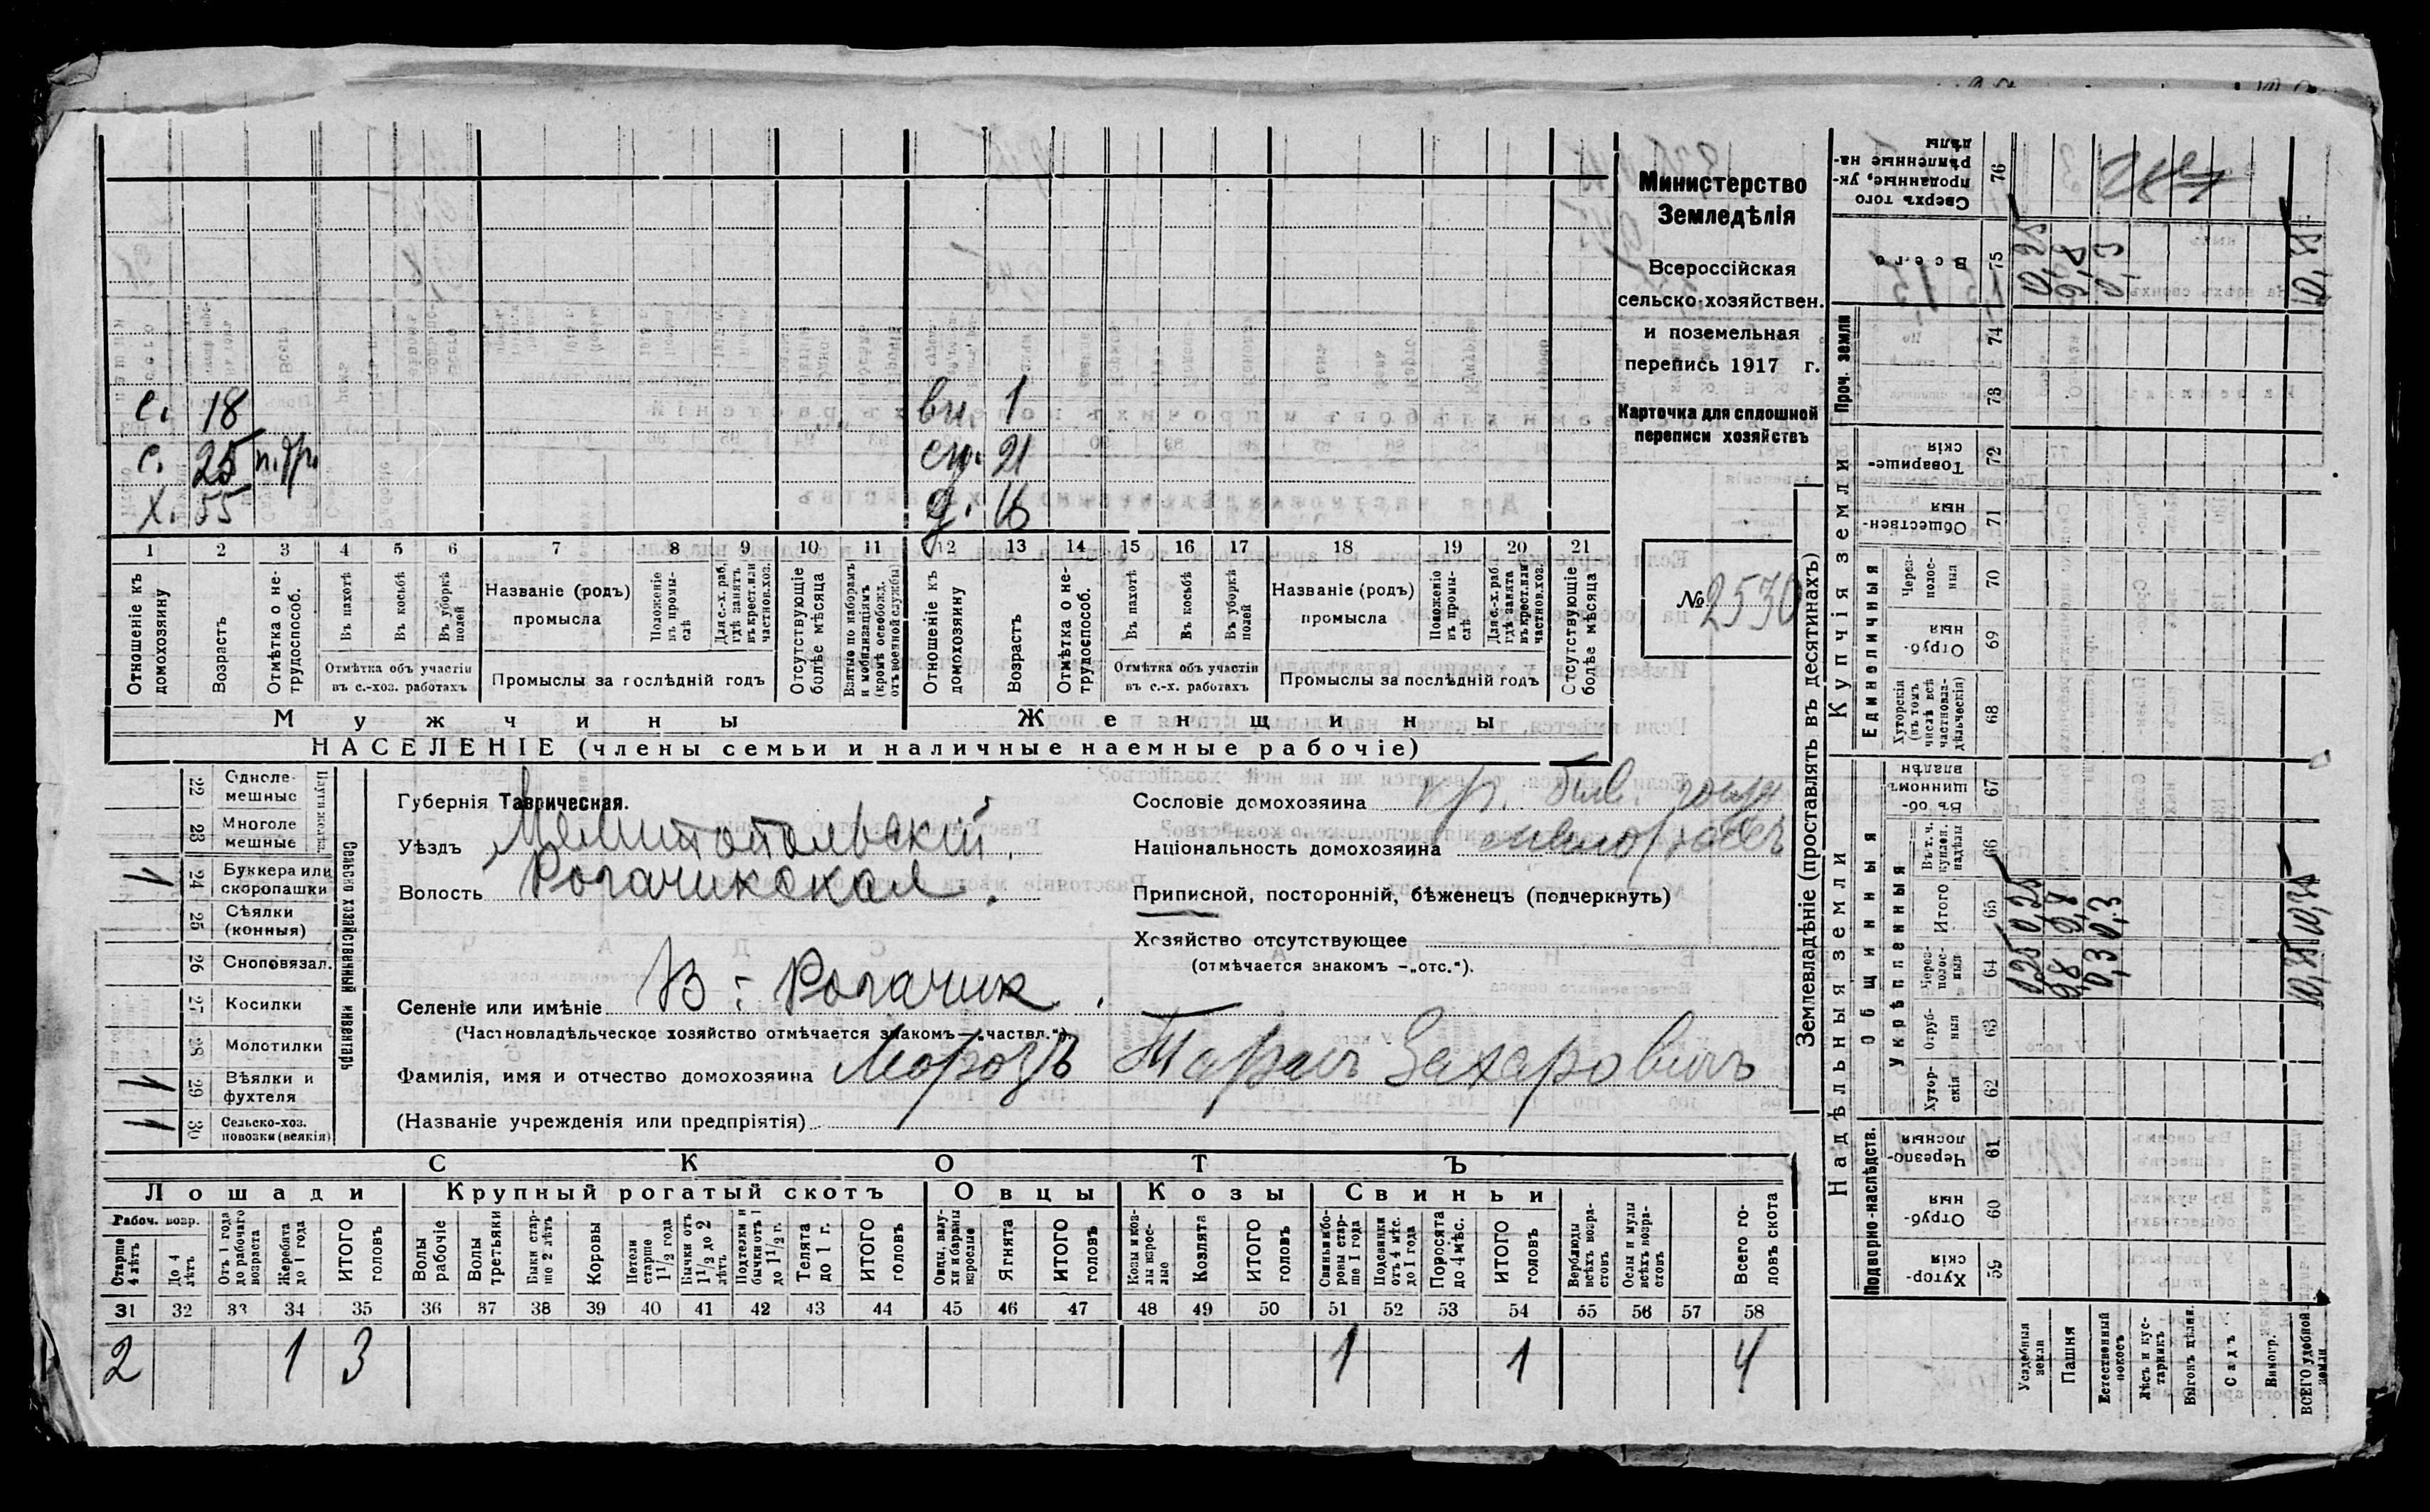 Министерство
Земледѣлія
Всероссійская
сельско-хозяйствен.
и поземельная
перепись 1917 г.
Карточка для сплошной
переписи хозяйствъ
№ 2530
с. 18 вн. 1
с. 25 п. гр. сн. 21
х. 55 д. 16
1 2 3 4 5 6 7 8 9 10 11 12 13 14 15 16 17 18 19 20 21
Отношеніе къ домохозяину
Возрастъ
Отмѣтка о не-трудоспособ.
Въ пахотѣ
Въ косьбѣ
Въ уборкѣ полей
Отмѣтка объ участіи
въ с.-хоз. работахъ
Названіе (родъ)
промысла
Положеніе въ промы-слѣ
Для с.-х. раб. гдѣ занятъ въ крест. или частнов. хоз.
Промыслы за послѣдній годъ
Отсутствующіе болѣе мѣсяца
Взятые по наборамъ и мобилизаціямъ (кромѣ освобожд. отъ военной службы)
Отношеніе къ домохозяину
Возрастъ
Отмѣтка о не-трудоспособ.
Въ пахотѣ
Въ косьбѣ
Въ уборкѣ полей
Отмѣтка объ участіи
въ с.-х. работахъ
Названіе (родъ)
промысла
Положеніе въ промы-слѣ
Для с.-х. раб. гдѣ занята въ крест. или частнов. хоз.
Промыслы за послѣдній годъ
Отсутствующіе болѣе мѣсяца
Мужчины Женщины
НАСЕЛЕНІЕ (члены семьи и наличные наемные рабочіе)
Сельско хозяйственный инвентарь
22 Одноле-мешные
23 Многоле мешные
24 Буккера или скоропашки
25 Сѣялки (конныя)
26 Сноповязал.
27 Косилки
28 Молотилки
29 Вѣялки и фухтеля
30 Сельско-хоз. повозки (всякія)
Губернія Таврическая.
Уѣздъ Мелитопольскій.
Волость Рогачикская.
Селеніе или имѣніе В: Рогачик.
(Частновладѣльческое хозяйство отмѣчается знакомъ — „частвл.“)
Фамилія, имя и отчество домохозяина Морозъ Тарасъ Захаровичъ
(Названіе учрежденія или предпріятія)
Сословіе домохозяина кр. быв. госуд
Національность домохозяина малороссъ
Приписной, посторонній, бѣженецъ (подчеркнуть)
Хозяйство отсутствующее
(отмѣчается знакомъ —„отс.“).
СКОТЪ
Лошади Крупный рогатый скотъ Овцы Козы Свиньи
Рабоч. возр.
Старше 4 лѣтъ
До 4 лѣтъ
Отъ 1 года до рабочаго возраста
Жеребята до 1 года
ИТОГО головъ
Волы рабочіе
Волы третьяки
Быки стар-ше 2 лѣтъ
Коровы
Нетели старше 1 1/2 года
Бычки отъ 1 1/2 до 2 лѣтъ
Подтелки и бычки отъ 1 до 1 1/2 г.
Телята до 1 г.
ИТОГО головъ
Овцы, валу-хи и бараны взрослые
Ягнята
ИТОГО головъ
Козы и коз-лы взрос-лые
Козлята
ИТОГО головъ
Свиньи и бо-ровы стар-ше 1 года
Подсвинки отъ 4 мѣс. до 1 года
Поросята до 4 мѣс.
ИТОГО головъ
Верблюды всѣхъ возра-стовъ
Ослы и мулы всѣхъ возра-стовъ
Всего го-ловъ скота
31 32 33 34 35 36 37 38 39 40 41 42 43 44 45 46 47 48 49 50 51 52 53 54 55 56 57 58
2 1 3 1 1 4
Землевладѣніе (проставлять въ десятинахъ)
Надѣльныя земли Купчія земли Проч. земли
Подворно-наслѣдств. Общинныя Единоличныя
Укрѣпленныя
Хутор-скія 59
Отруб-ныя 60
Черезпо-лосныя 61
Хутор-скія 62
Отруб-ныя 63
Через-полос-ныя 64
Итого 65
Въ т. ч. куплен. надѣлы 66
Въ об-щинномъ владѣн 67
Хуторскія (въ томъ числѣ всѣ частновла-дѣльческія) 68
Отруб-ныя 69
Через-полос-ныя 70
Обществен-ныя 71
Товарище-скія 72
73
74
Всего 75
Сверхъ того проданные, ук-рѣпленные на-дѣлы 76
Усадебныя земли 0,25 0,25 0,25
Пашня 9,8 9,8 9,8
Естественный покосъ 0,3 0,3 0,3
Лѣсъ и кус-тарникъ
Выгонъ цѣлин.
Садъ
Виногр.
ВСЕГО удобной земли 10,35 10,35 10,35